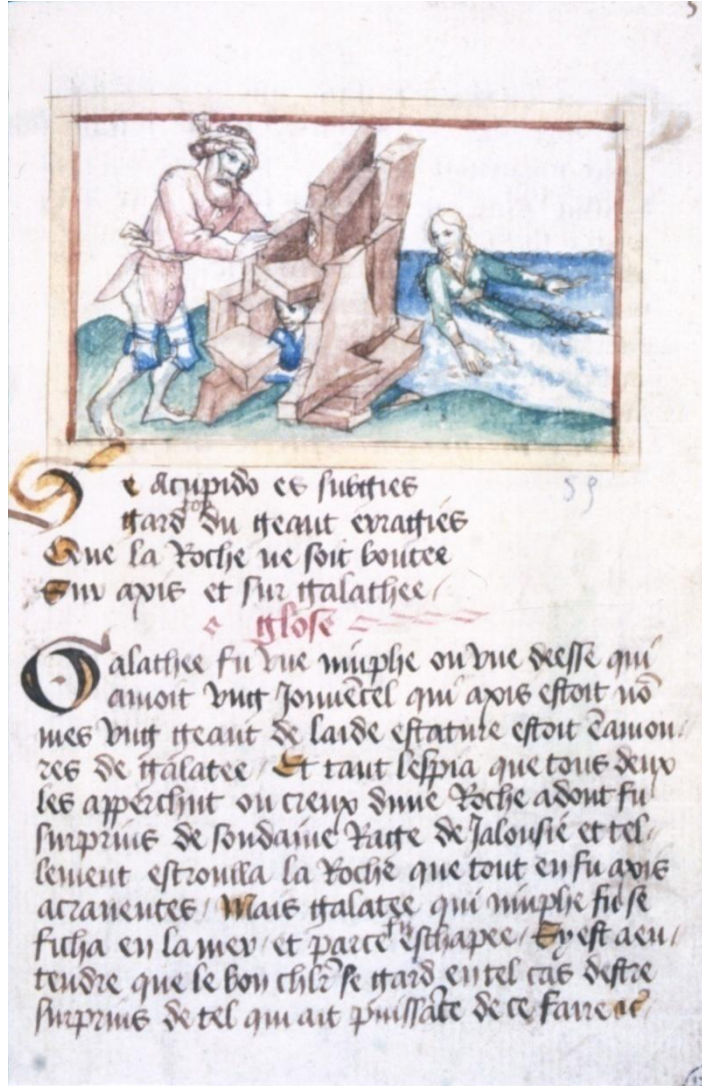 Se acupido es subgies
gard toy du geant enragies
Que la Roche ne soit boutee
Sur axis et sur galathee /
glose
Galathee fu vne ninphe ou vne deesse qui
amoit vng Jouuēcel qui axis estoit nō
mes vng geant de laide estature estoit ēamou /
res de galatee / Et tant lespia que tous deux
les apperchut ou creux dune Roche adont fu
surprins de soudaine Rage de Jalousie et tel /
lement estroulla la Roche que tout en fu axis
acrauentes / Mais galatee qui ninphe fu se
ficha en la mer / et parce fu eschapee / Cy est a en /
tendre que le bon chlr̄ se gard en tel cas destre
surprins de tel qui ait puissāce de ce faire et
59